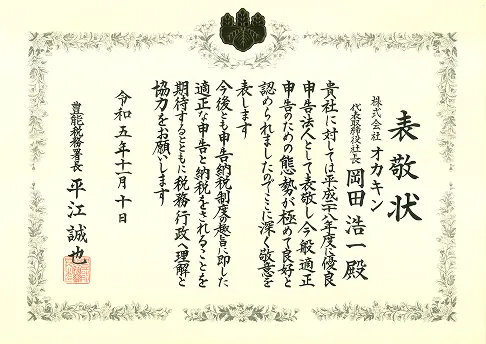 表敬状
株式会社 オカキン
代表取締役社長 岡田浩一殿
貴社に対しては平成二八年度に優良
申告法人として表敬し今般適正
申告のための態勢が極めて良好と
認められましたのでここに深く敬意を
表します
今後とも申告納税制度の趣旨に即した
適正な申告と納税をされることを
期待するとともに税務行政へ理解と
協力をお願いします
令和五年十一月十日
豊能税務署長 平江誠也